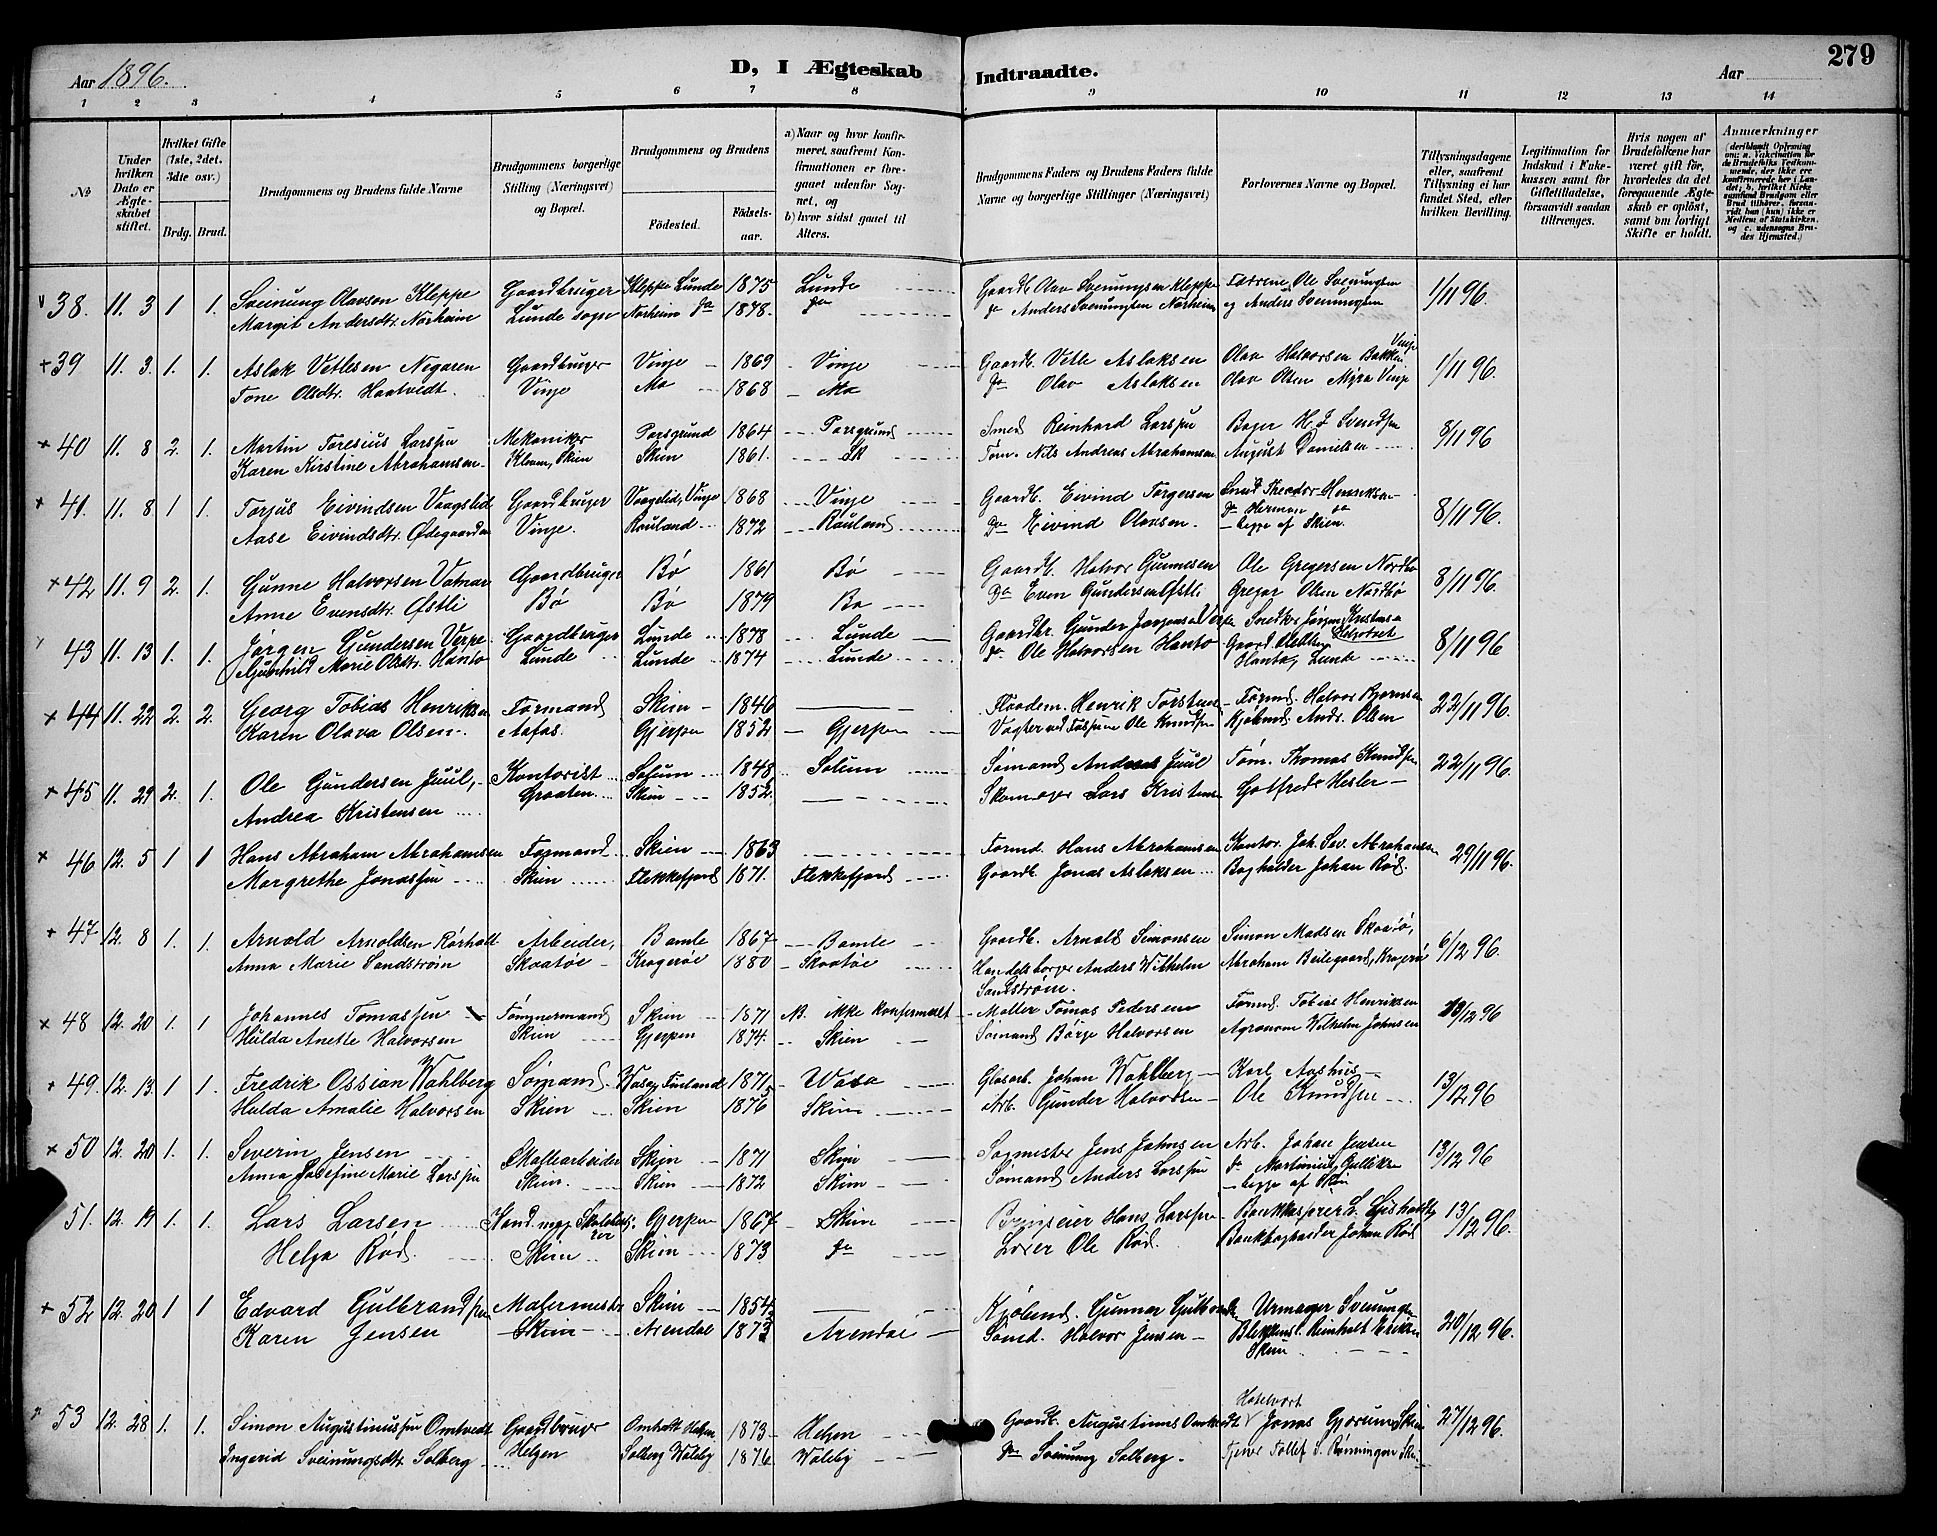 Aar 1896.
D, I Ægteskab
Indtraadte.
Aar
279
1 2 3 4 5 6 7 8 9 10 11 12 13 14
No
Under hvilken Dato er Ægteskabet stiftet.
Hvilket Gifte (1ste, 2det, 3die osv.)
Brdg. Brud.
Brudgommens og Brudens fulde Navne
Brudgommens borgerlige Stilling (Næringsvei) og Bopæl.
Brudgommens og Brudens
Födested.
Födselsaar.
a) Naar og hvor konfirmeret, saafremt Konfirmationen er foregaaet udenfor Sognet, og
b) hvor sidst gaaet til Alters.
Brudgommens Faders og Brudens Faders fulde Navne og borgerlige Stillinger (Næringsvei)
Forlovernes Navne og Bopæl.
Tillysningsdagene eller, saafremt Tillysning ei har fundet Sted, efter hvilken Bevilling.
Legitimation for Indskud i Enkekassen samt for Giftetilladelse, forsaavidt saadan tiltrænges.
Hvis nogen af Brudefolkene har været gift för, hvorledes da det foregaaende Ægteskab er oplöst, samt om lovligt Skifte er holdt.
Anmærkninger (deriblandt Oplysning om: a. Vakcination for de Brudefolks Vedkommende, der ikke ere konfirmerede her i Landet; b. hvilket Kirkesamfund Brudgom eller Brud tilhörer, forsaavidt han (hun) ikke er Medlem af Statskirken, og c. udensogns Brudes Hjemsted.)
38. 11. 3 1 1. Sveinung Olavsen Kleppe Gaardbruger Kleppe Lunde 1875 Lunde Gaardb. Olav Sveinungsen Kleppe Fædrene Ole Sveinungsen 1/11 96.
Margit Andersdtr. Norheim Lunde sogn Norheim do 1878. do do Anders Sveinungsen Norheim og Anders Sveinungsen
39 11. 3. 1. 1. Aslak Vetlesen Negaren Gaardbruger Vinje 1869 Vinje Gaardb. Vetle Aslaksen Olav Halvorsen Bakken Vinje 1/11 96.
Tone Olsdtr. Haatvedt. Vinje Mo 1868 Mo do Olav Aslaksen Olav Olsen Myra Vinje
40 11. 8 2. 1. Martin Foresius Larssen Mekaniker Porsgrund 1864 Porsgrund Smed Reinhard Larssen Bager H. J. Svendsen 8/11 96
Karen Kirstine Abrahamsen Kleven, Skien Skien 1861. Sk Töm. Nils Andreas Abrahamsen August Danielsen
41. 11. 8 1 1. Torjus Eivindsen Vaagslid Gaardbruger Vaagslid, Vinje 1868 Vinje Gaardb. Eivind Torgersen Smed Theodor Henriksen 8/11 96.
Aase Eivindsdtr. Ødegaarden Vinje. Rauland 1872 Rauland do Eivind Olavsen. do Herman do
begge af Skien.
42 11. 9 2. 1. Gunne Halvorsen Vatnar Gaardbruger Bö 1861 Bö Gaardb. Halvor Gunnesen Ole Gregersen Nordbö 8/11 96.
Anne Evensdtr. Østli Bö Bö 1879 Bö do Even Gundersen Østli Gregar Olsen Nordbö
43 11. 13 1. 1. Jørgen Gundersen Verpe Gaardbruger Lunde 1878 Lunde Gaardbr. Gunder Jørgensen Verpe Snedker Jørgen Kristensen 8/11 96
Gunhild Marie Olsdtr. Hantø Lunde Lunde 1874 Lunde do Ole Halvorsen Hantø Hantø, Lunde
44 11. 22 2. 2. Georg Tobias Henriksen Formand Skien 1846 Henrik Torstens Formd. Halvor Bjørnsen 22/11 96.
Karen Olava Olsen. Aafos. Gjerpen 1852 Gjerpen Vagter ved Fossum Ole Knudsen Kjøbmd. Andr. Olsen
45 11. 29 2. 1. Ole Gundersen Juul, Kontorist Solum 1848 Solum Sømand Andreas Juul Töm. Thomas Knudsen 22/11 96.
Andrea Kristensen Graaten Skien 1852 Skomager Lars Kristens Gotfred Hesler
46 12. 5 1 1 Hans Abraham Abrahamsen Formand Skien 1863 Formd. Hans Abrahamsen Kontor. Joh. Sev. Abrahamsen 29/11 96.
Margrethe Jonassen Skien Flekkefjord 1871. Flekkefjord Gaardb. Jonas Aslaksen Bogholder Johan Rød.
47 12. 8 1. 1. Arnold Arnoldsen Rørholt Arbeider, Bamle 1867 Bamle Gaardb. Arnold Simonsen Simon Madsen Skaatø, 6/12 96.
Anna Marie Sandstrøm Skaatøe Kragerøe 1880 Skaatøe Handelsborger Anders Wilhelm Abraham Beilegaard, Kragerø
Sandstrøm.
48 12. 20 1. 1 Johannes Tomassen Tømmermand Skien 1871 N. ikke konfirmeret Møller Tomas Pedersen Formd. Tobias Henriksen 13/12 96
Hulda Anette Halvorsen Skien Gjerpen 1874. Skien Sømand Børge Halvorsen Agronom Wilhelm Johnsen
49. 12. 13. 1 1. Fredrik Ossian Wahlberg Sømand Wasa, Finland 1871 Wasa Glasarb. Johan Wahlberg Karl Aashus 13/12 96
Hulda Amalie Halvorsen Skien Skien 1876 Skien Arb. Gunder Halvorsen Ole Knudsen
50 12. 20 1. 1. Severin Jensen Møllearbeider Skien 1871 Skien Sagmester Jens Johnsen Arb. Johan Jensen 13/12 96
Anna Josefine Marie Larssen Skien. Skien 1872 Skien Sømand Anders Larssen do Martinius Gulliksen
begge af Skien
51. 12. 19 1. 1. Lars Larsen Gjerpen 1867 Skien Hans Larssen 13/12 96.
Helga Rød. Skien Skien 1873 do Ole Rød. Bankbogholder Johan Rød
52 12. 20 1 1 Edvard Gulbrandsen Malermester Skien 1854 Kjøbmd. Gunnar Gulbrandsen Urmager Sveinungsen 20/12 96.
Karen Jensen Skien Arendal 1873 Arendal Sømd. Halvor Jensen Blikkensl. Reinholt Eriksen
Skien
53 12. 28 1. 1. Simon Augustinussen Omtvedt Gaardbruger Omtvedt Helgen 1873 Helgen Gaardb. Augustinus Omtvedt Hotelvært Jonas Gjerum Skien 27/12 96.
Ingerid Sveinungsdtr. Solberg Helgen Solberg Valeby 1876 Valeby do Sveinung Solberg. Tollef S. Rønningen Skien